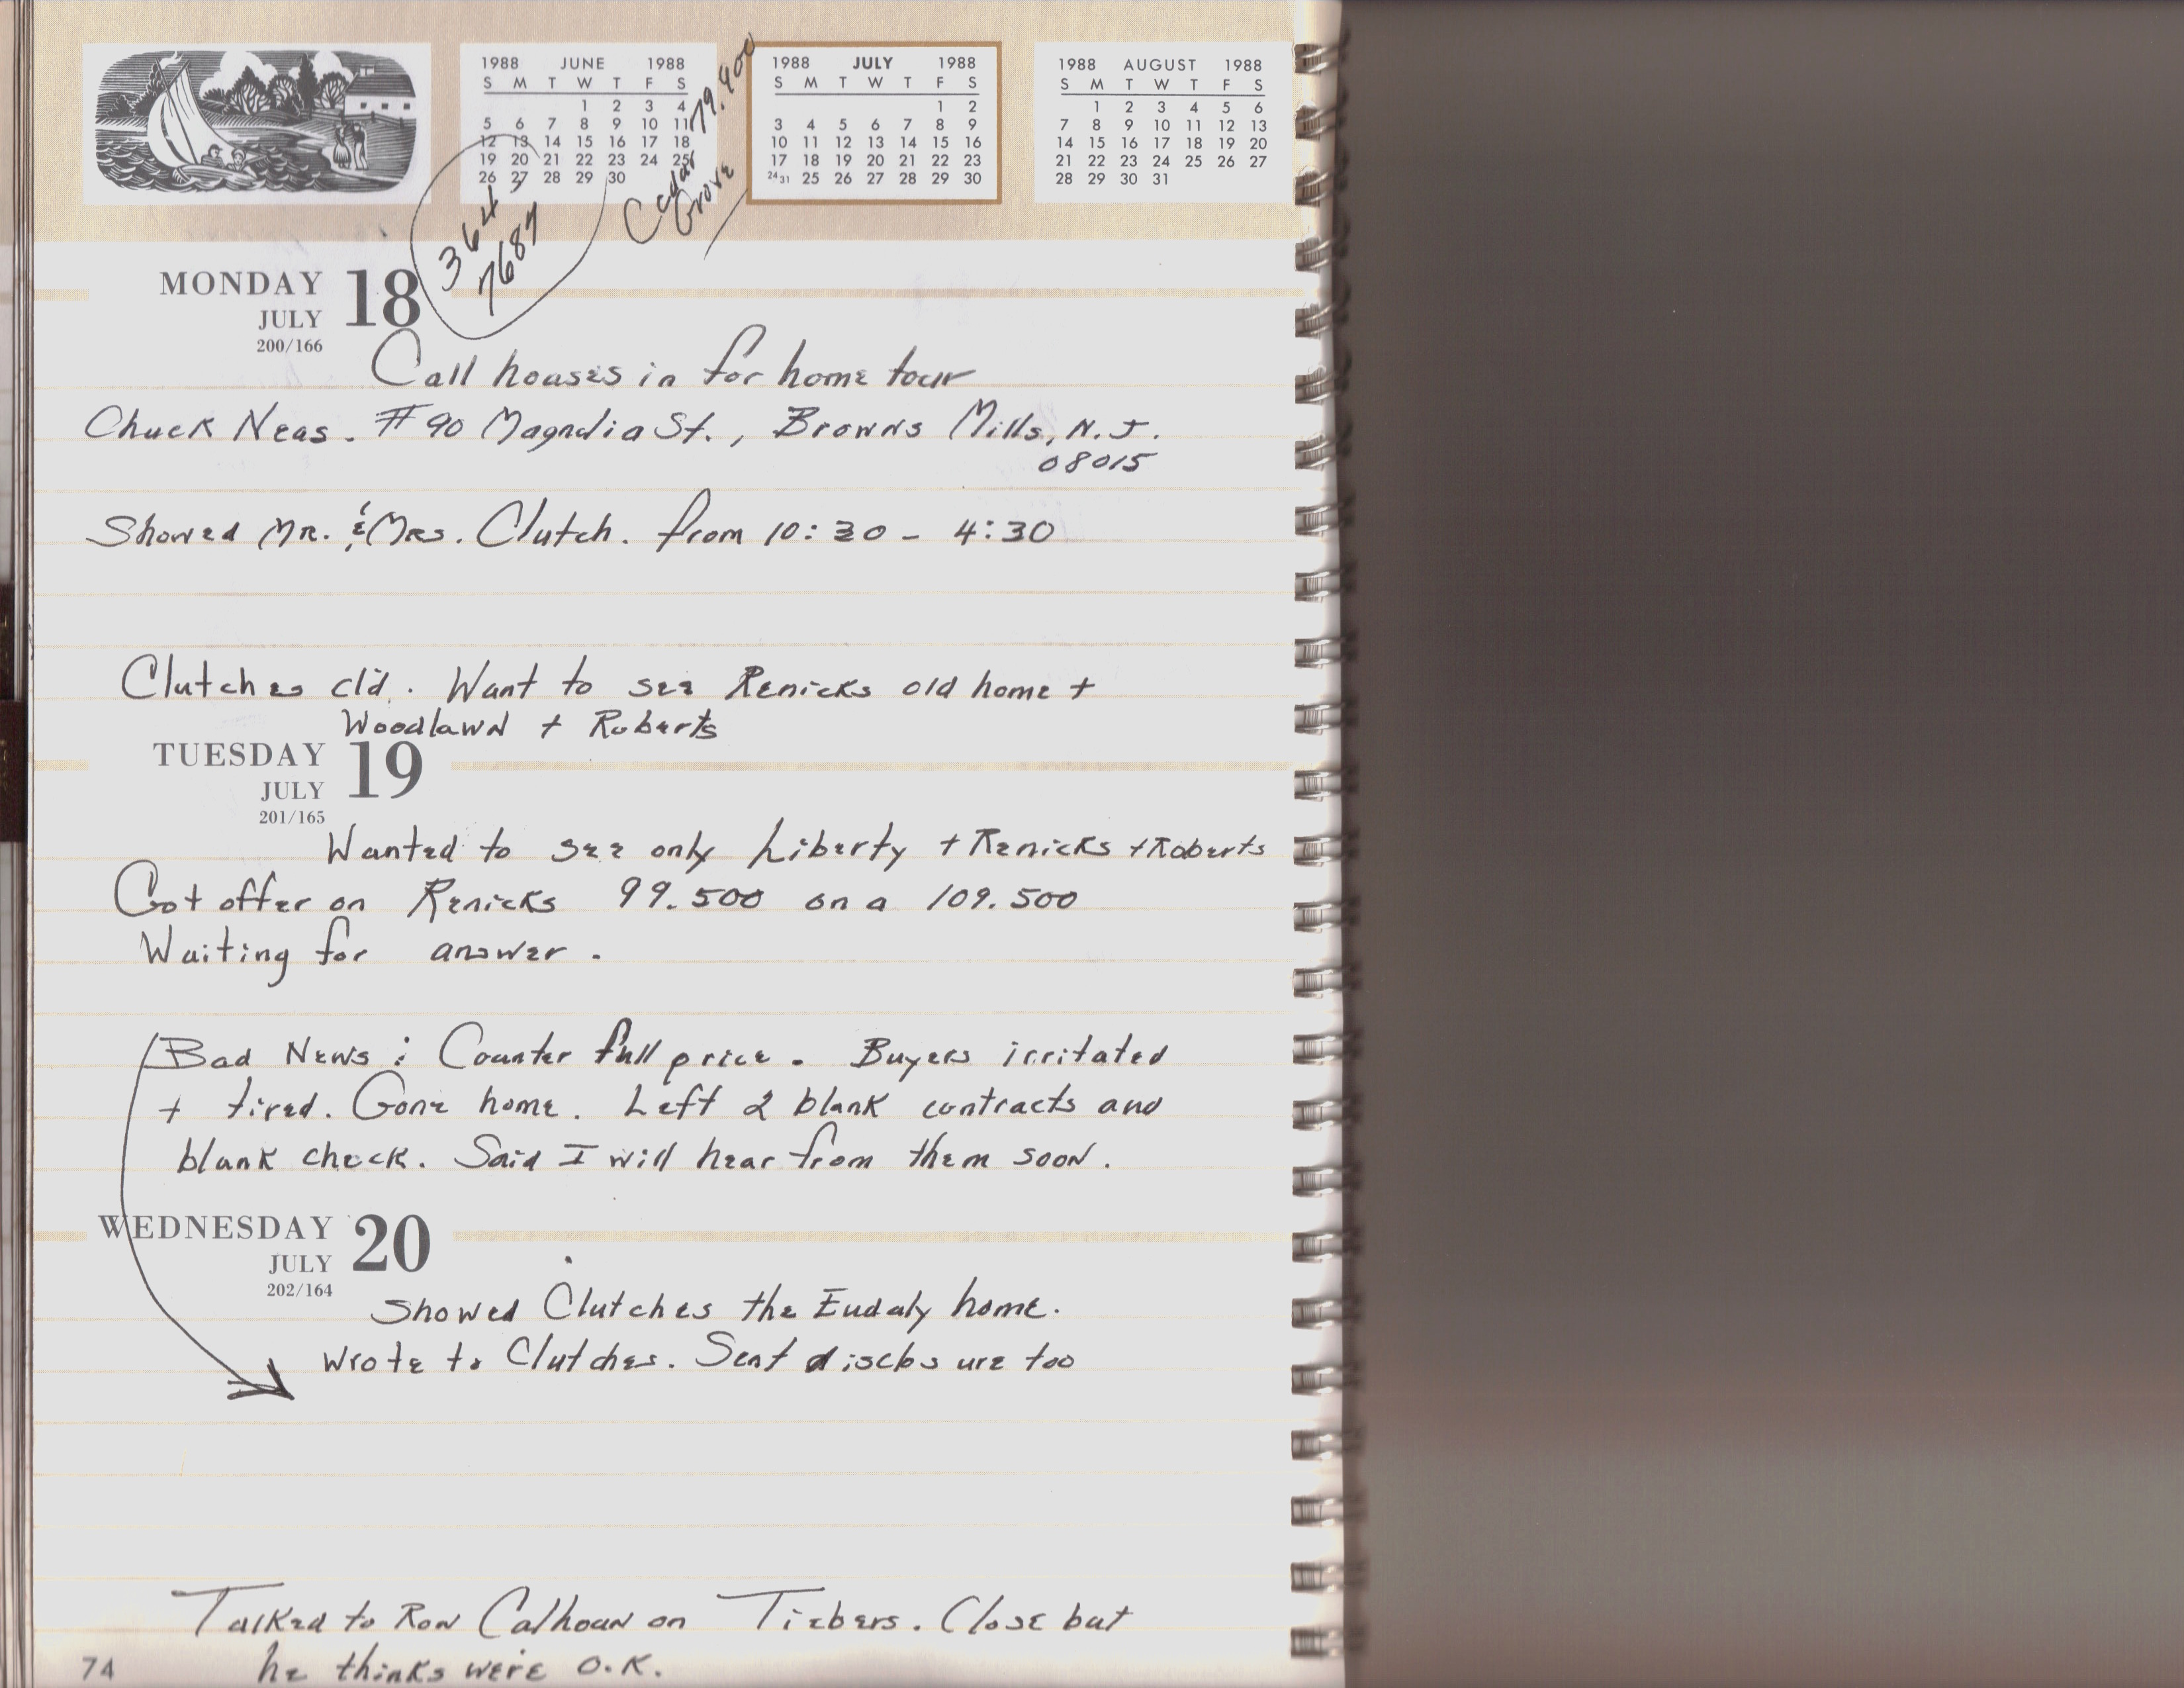 1988 JUNE 1988
S M T W T F S
1 2 3 4
5 6 7 8 9 10 11
12 13 14 15 16 17 18
19 20 21 22 23 24 25
26 27 28 29 30
1988 JULY 1988
S M T W T F S
1 2
3 4 5 6 7 8 9
10 11 12 13 14 15 16
17 18 19 20 21 22 23
24 31 25 26 27 28 29 30
1988 AUGUST 1988
S M T W T F S
1 2 3 4 5 6
7 8 9 10 11 12 13
14 15 16 17 18 19 20
21 22 23 24 25 26 27
28 29 30 31
364
7687
Cedar 79.900
Grove
MONDAY 18
JULY
200/166
Call houses in for home tour
Chuck Neas. #90 Magnolia St., Browns Mills, N.J.
08015
Showed Mr. & Mrs. Clutch. from 10:30 - 4:30
Clutches cld. Want to see Renicks old home +
Woodlawn + Roberts
TUESDAY 19
JULY
201/165
Wanted to see only Liberty + Renicks + Roberts
Got offer on Renicks 99.500 on a 109.500
Waiting for answer.
Bad News: Counter full price. Buyers irritated
+ tired. Gone home. Left 2 blank contracts and
blank check. Said I will hear from them soon.
WEDNESDAY 20
JULY
202/164
Showed Clutches the Eudaly home.
Wrote to Clutches. Sent disclosure too
Talked to Ron Calhoun on Tiebers. Close but
he thinks we're O.K.
74